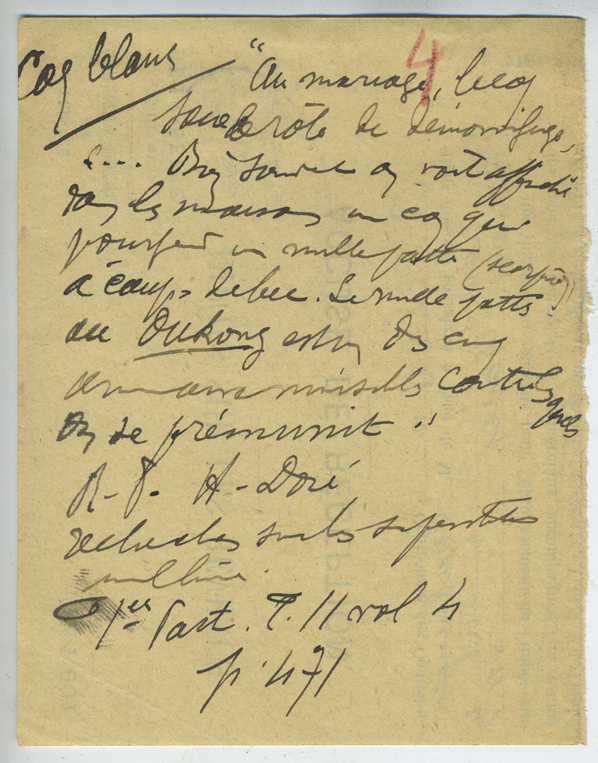 Coq blanc
4
"Au mariage, le coq
joue le rôle de démonifuge,
"... Bien souvent on voit affiché
dans les maisons un coq qui
pourfend un mille pattes (scorpion)
à coups de bec. Le mille pattes
ou Oukong est un des cinq
animaux nuisibles contre lesquels
on se prémunit"
R. P. H. Doré
recherches sur les superstitions
en Chine.
1ère Part. T. II vol 4
p. 471